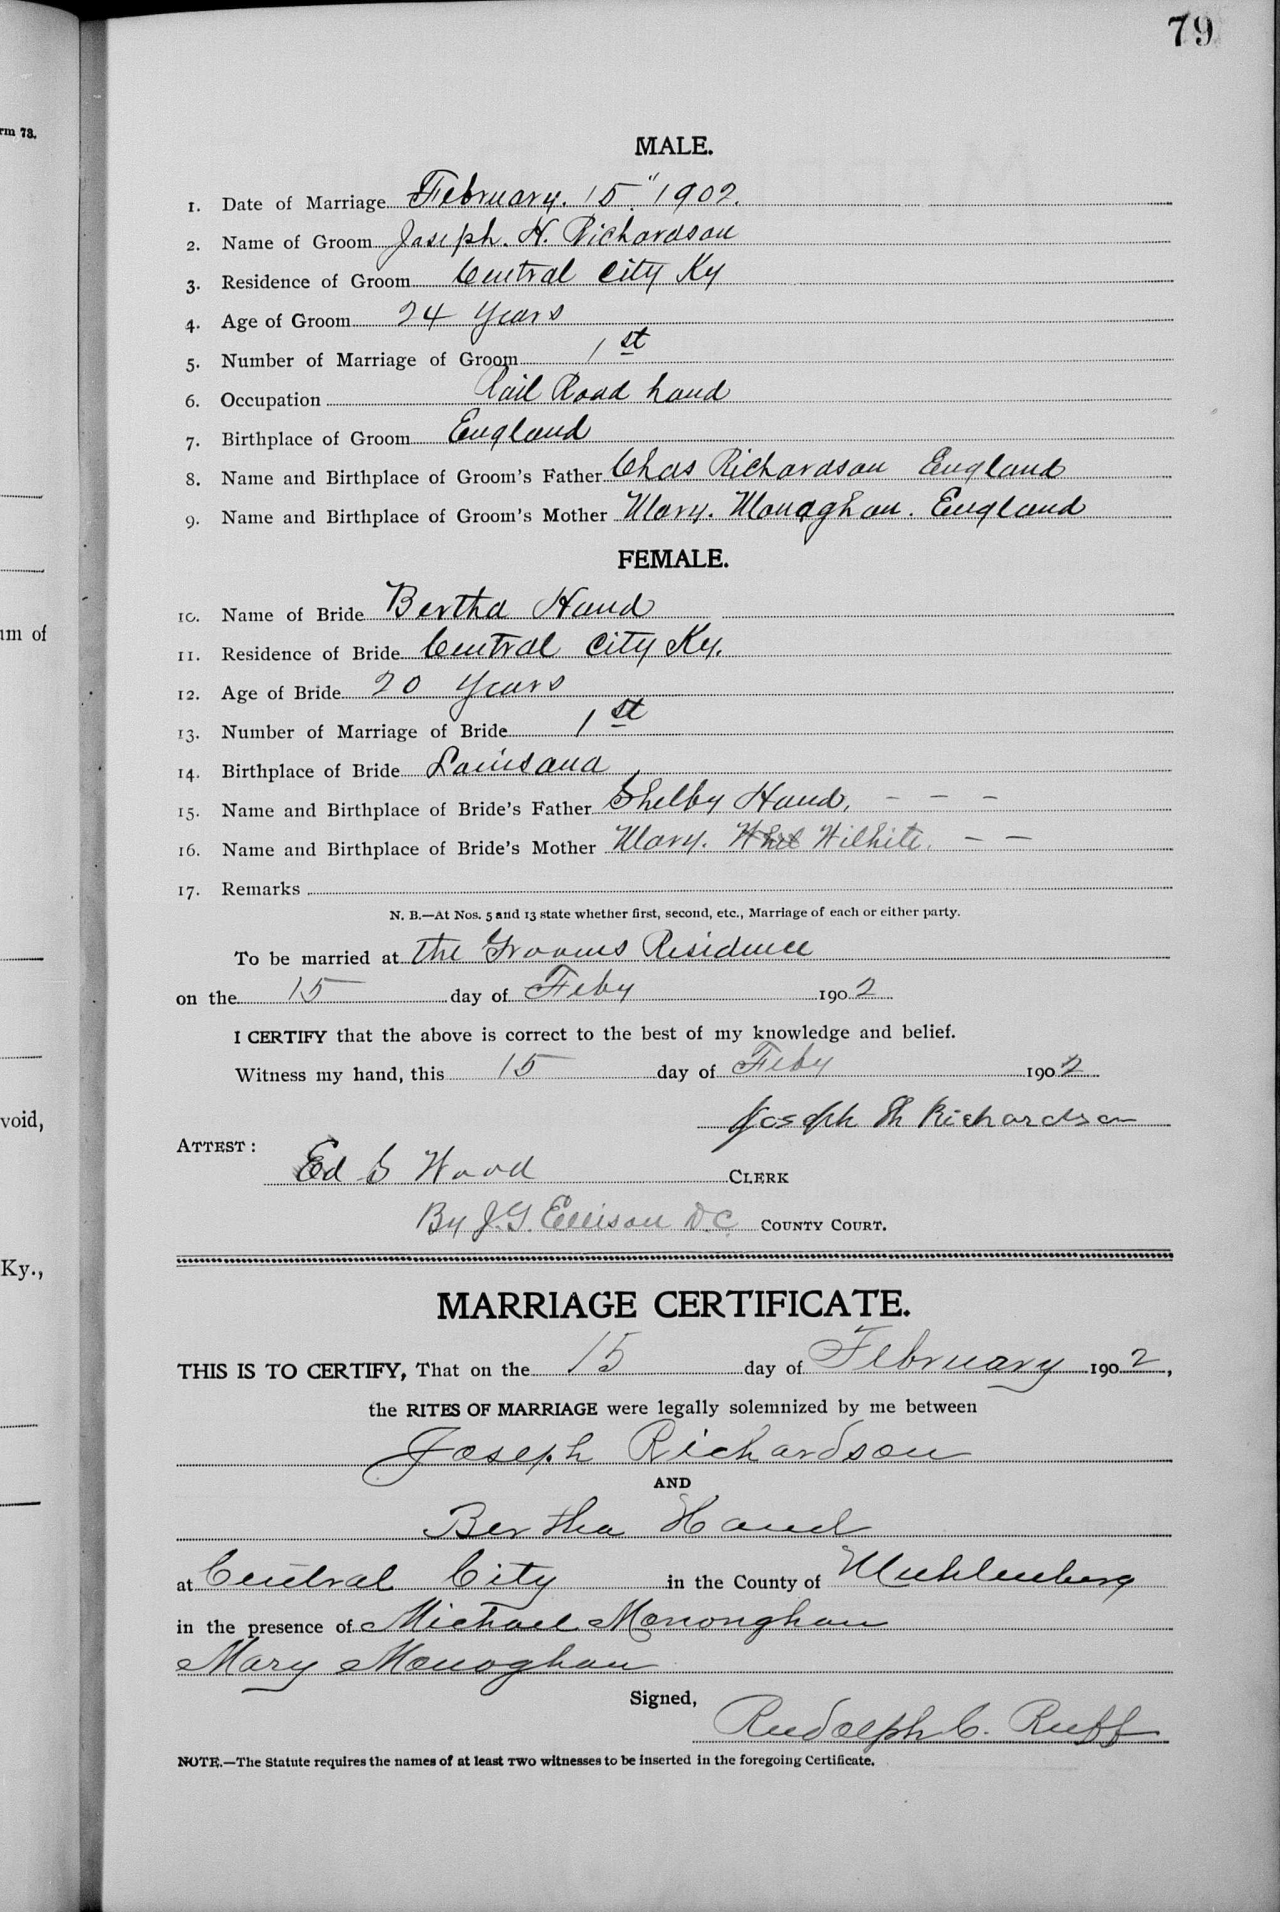 79
rm 73.
MALE.
1. Date of Marriage February. 15." 1902.
2. Name of Groom Joseph. H. Richardson
3. Residence of Groom Central City Ky
4. Age of Groom 24 Years
5. Number of Marriage of Groom 1st
6. Occupation Rail Road hand
7. Birthplace of Groom England
8. Name and Birthplace of Groom's Father Chas Richardson England
9. Name and Birthplace of Groom's Mother Mary. Monaghan. England
FEMALE.
10. Name of Bride Bertha Hand
um of
11. Residence of Bride Central City Ky.
12. Age of Bride 20 Years
13. Number of Marriage of Bride 1st
14. Birthplace of Bride Louisana
15. Name and Birthplace of Bride's Father Shelby Hand, - - -
16. Name and Birthplace of Bride's Mother Mary. Wilhite. - -
17. Remarks
N. B.—At Nos. 5 and 13 state whether first, second, etc., Marriage of each or either party.
To be married at the Grooms Residence
on the 15 day of Feby 1902
I CERTIFY that the above is correct to the best of my knowledge and belief.
Witness my hand, this 15 day of Feby 1902
void,
Joseph H Richardson
ATTEST:
Ed S Wood CLERK
By J. G. Ellison D.C. COUNTY COURT.
Ky.,
MARRIAGE CERTIFICATE.
THIS IS TO CERTIFY, That on the 15 day of February 1902,
the RITES OF MARRIAGE were legally solemnized by me between
Joseph Richardson
AND
Bertha Hand
at Central City in the County of Muhlenberg
in the presence of Michael Mononghan
Mary Monoghan
Signed,
Rudolph C. Ruff
NOTE.—The Statute requires the names of at least TWO witnesses to be inserted in the foregoing Certificate.